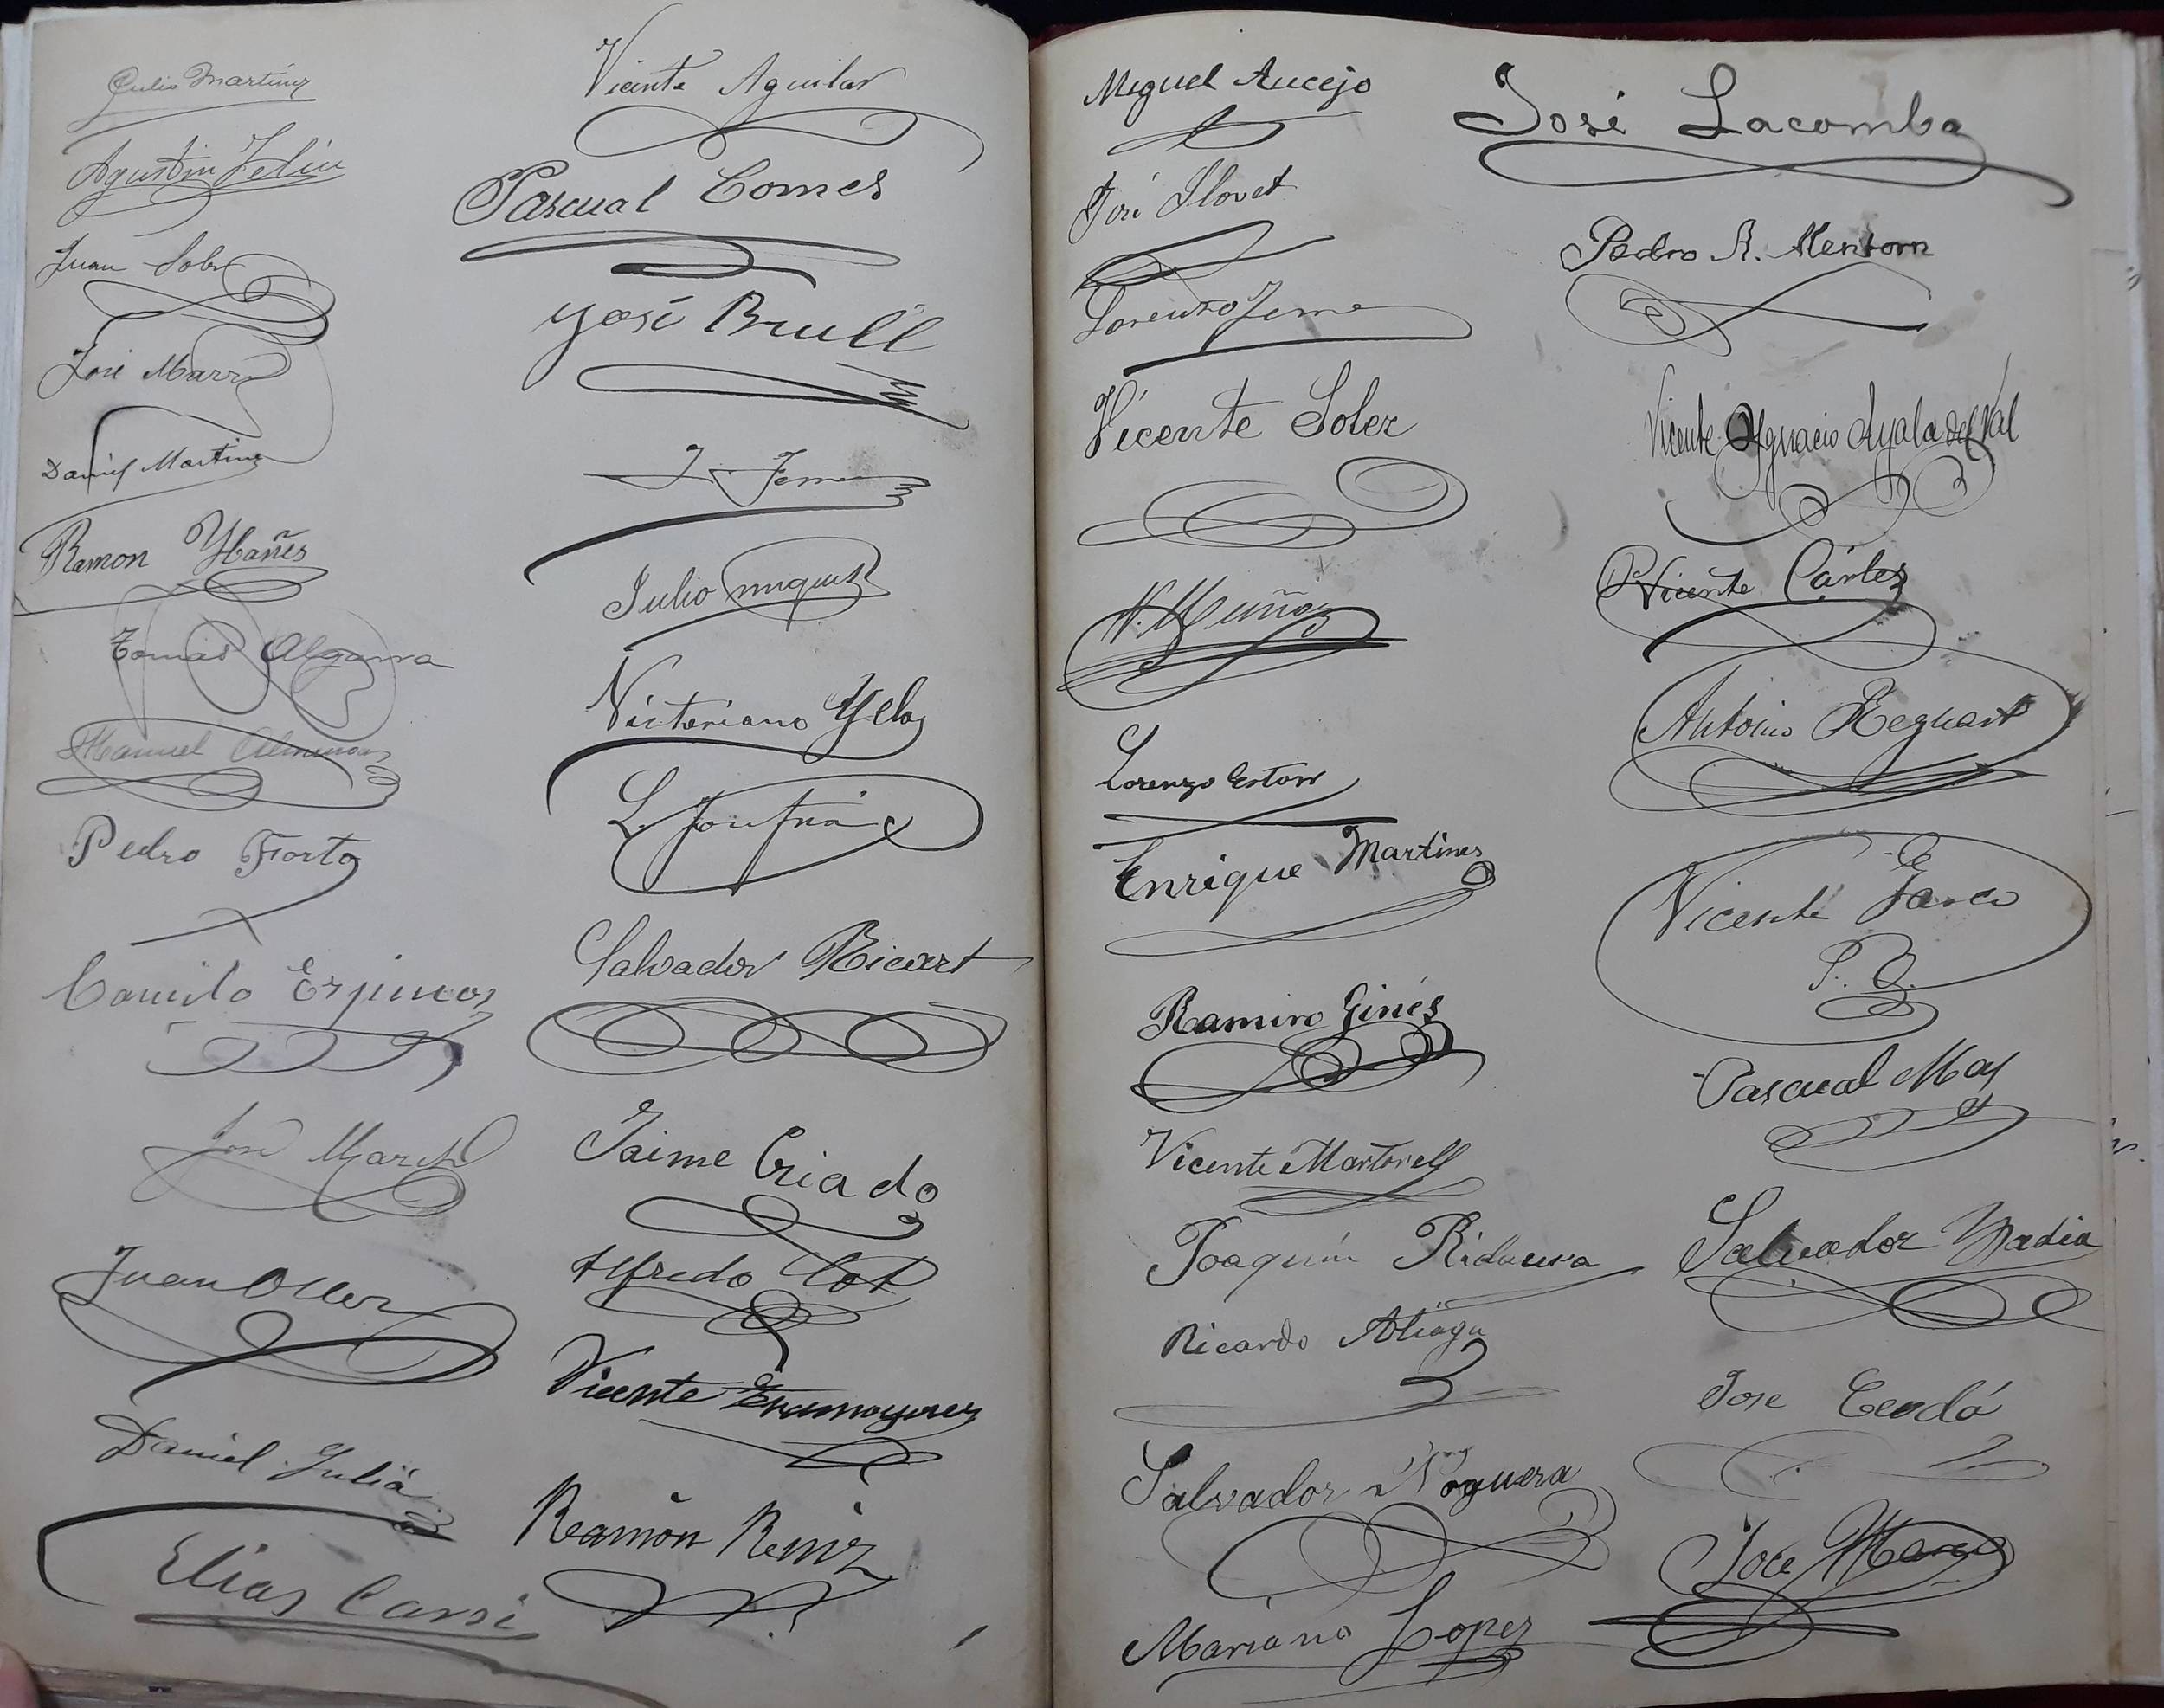 Julio Martinez
Agustin Feliu
Juan
José
Daniel Martinez
Ramon Ybañes
Tomas Algarra
Manuel
Pedro Forto
Camilo Espinos
José March
Juan Oller
Daniel Juliá
Elias Carsi
Vicente Aguilar
Pascual Comes
José Brull
J.
Julio
Victoriano
L.
Salvador Ricart
Jaime Criado
Alfredo Cot
Vicente
Ramón
Miguel Aucejo
José Llovet
Lorenzo
Vicente Soler
V. Muñoz
Lorenzo
Enrique Martines
Ramiro Ginés
Vicente Martorell
Joaquín Ridaura
Ricardo Aliaga
Salvador Noguera
Mariano Lopez
José Lacomba
Pedro A.
Vicente Ygnacio Ayala del Val
Vicente Cárles
Antonio Reguart
Vicente
Pascual Mas
Salvador
Jose Cendá
José